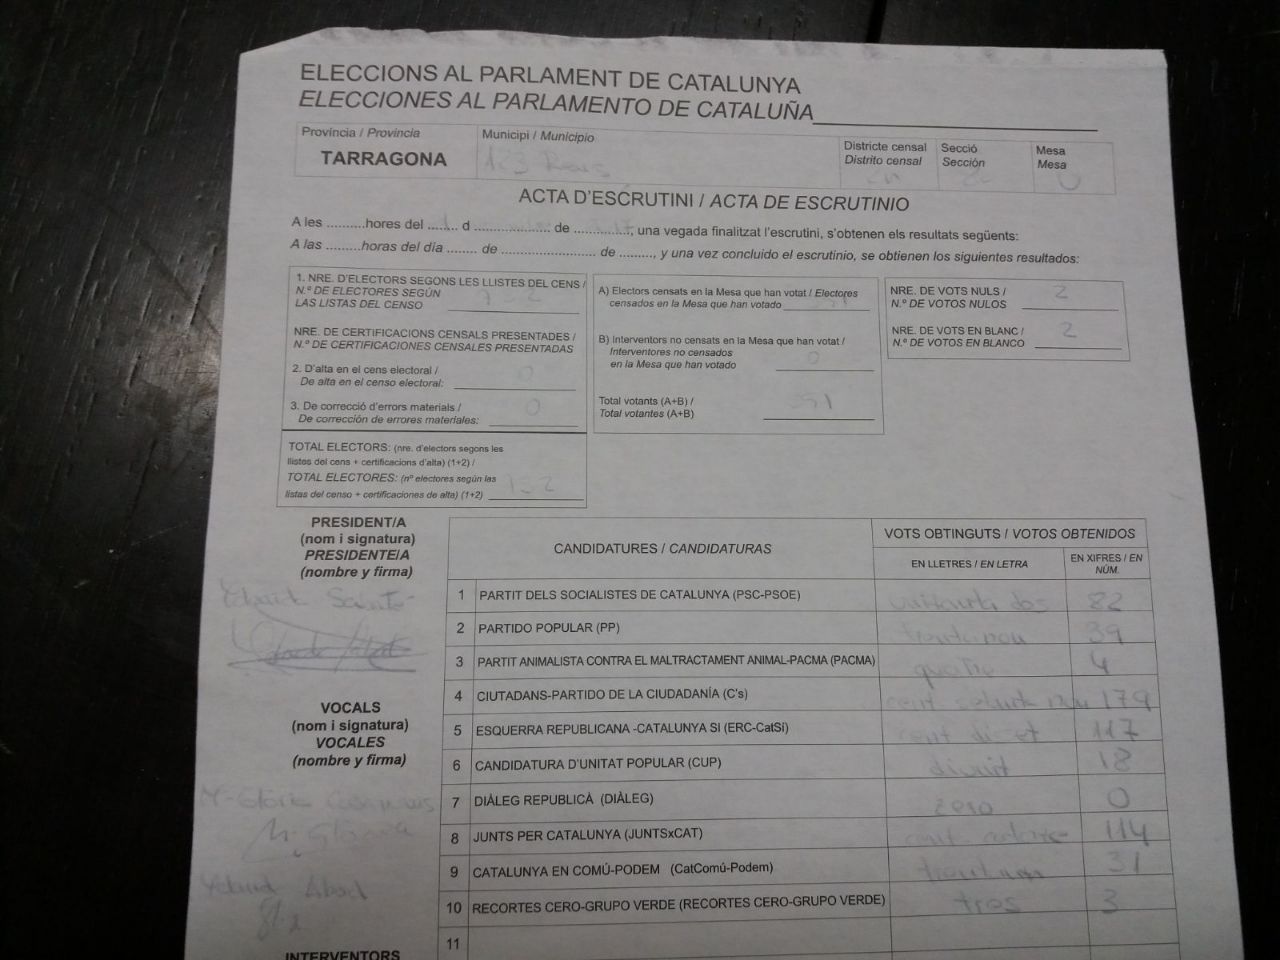 ELECCIONS AL PARLAMENT DE CATALUNYA
ELECCIONES AL PARLAMENTO DE CATALUÑA
Província / Provincia
TARRAGONA
Municipi / Municipio
123 Reus
Districte censal
Distrito censal
Secció
Sección
Mesa
Mesa
U
ACTA D'ESCRUTINI / ACTA DE ESCRUTINIO
A les ..........hores del ........ d .................... de .............., una vegada finalitzat l'escrutini, s'obtenen els resultats següents:
A las .........horas del día ........ de ......................... de ........., y una vez concluido el escrutinio, se obtienen los siguientes resultados:
1. NRE. D'ELECTORS SEGONS LES LLISTES DEL CENS /
N.º DE ELECTORES SEGÚN
LAS LISTAS DEL CENSO
NRE. DE CERTIFICACIONS CENSALS PRESENTADES /
N.º DE CERTIFICACIONES CENSALES PRESENTADAS
2. D'alta en el cens electoral /
De alta en el censo electoral: 0
3. De correcció d'errors materials /
De corrección de errores materiales: 0
TOTAL ELECTORS: (nre. d'electors segons les
llistes del cens + certificacions d'alta) (1+2) /
TOTAL ELECTORES: (nº electores según las
listas del censo + certificaciones de alta) (1+2)
A) Electors censats en la Mesa que han votat / Electores
censados en la Mesa que han votado
B) Interventors no censats en la Mesa que han votat /
Interventores no censados
en la Mesa que han votado 0
Total votants (A+B) /
Total votantes (A+B) 591
NRE. DE VOTS NULS /
N.º DE VOTOS NULOS 2
NRE. DE VOTS EN BLANC /
N.º DE VOTOS EN BLANCO 2
PRESIDENT/A
(nom i signatura)
PRESIDENTE/A
(nombre y firma)
VOCALS
(nom i signatura)
VOCALES
(nombre y firma)
INTERVENTORS
CANDIDATURES / CANDIDATURAS
VOTS OBTINGUTS / VOTOS OBTENIDOS
EN LLETRES / EN LETRA
EN XIFRES / EN NÚM.
1 PARTIT DELS SOCIALISTES DE CATALUNYA (PSC-PSOE) vuitanta dos 82
2 PARTIDO POPULAR (PP) trenta nou 39
3 PARTIT ANIMALISTA CONTRA EL MALTRACTAMENT ANIMAL-PACMA (PACMA) quatre 4
4 CIUTADANS-PARTIDO DE LA CIUDADANÍA (C's) cent setanta nou 179
5 ESQUERRA REPUBLICANA -CATALUNYA SI (ERC-CatSí) cent disset 117
6 CANDIDATURA D'UNITAT POPULAR (CUP) divuit 18
7 DIÀLEG REPUBLICÀ (DIÀLEG) zero 0
8 JUNTS PER CATALUNYA (JUNTSxCAT) cent catorze 114
9 CATALUNYA EN COMÚ-PODEM (CatComú-Podem) 31
10 RECORTES CERO-GRUPO VERDE (RECORTES CERO-GRUPO VERDE) tres 3
11